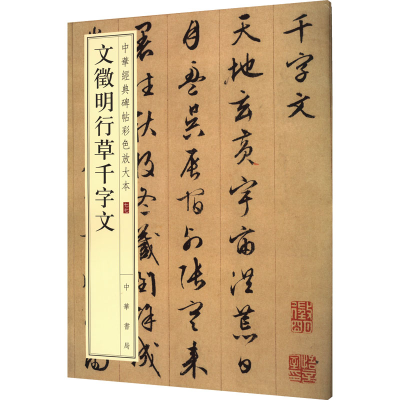 千字文
天地玄黃宇宙洪荒日
月盈昃辰宿列張寒来
暑往秋收冬藏閏餘成
中華經典碑帖彩色放大本
文徵明行草千字文
中華書局